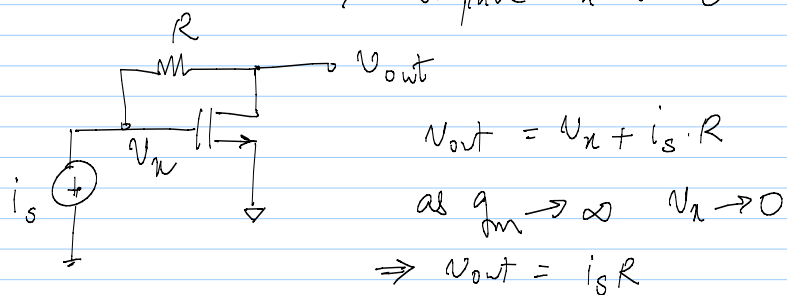 R
Vout
Vx
is
+
Vout = Vx + is . R
as gm → ∞ Vx → 0
⇒ Vout = isR